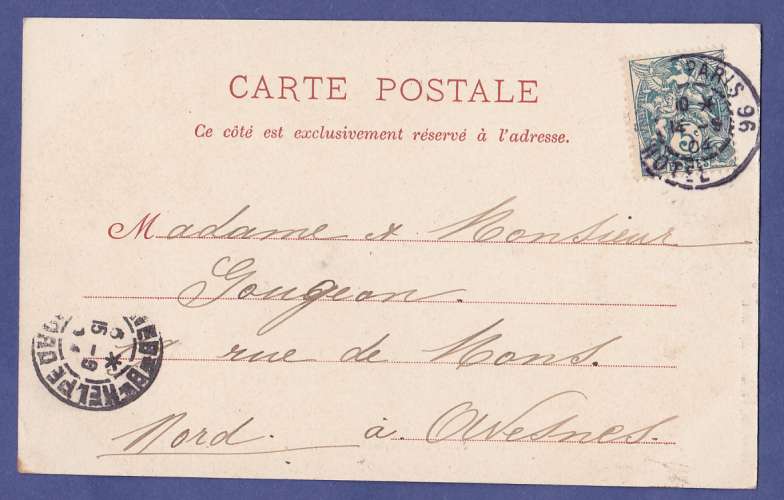 CARTE POSTALE
Ce côté est exclusivement réservé à l'adresse.
PARIS 96
10
04
HOTEL
5
Madame & Monsieur
Gougeon.
rue de Mons.
Nord. à Avesnes.
HELPE